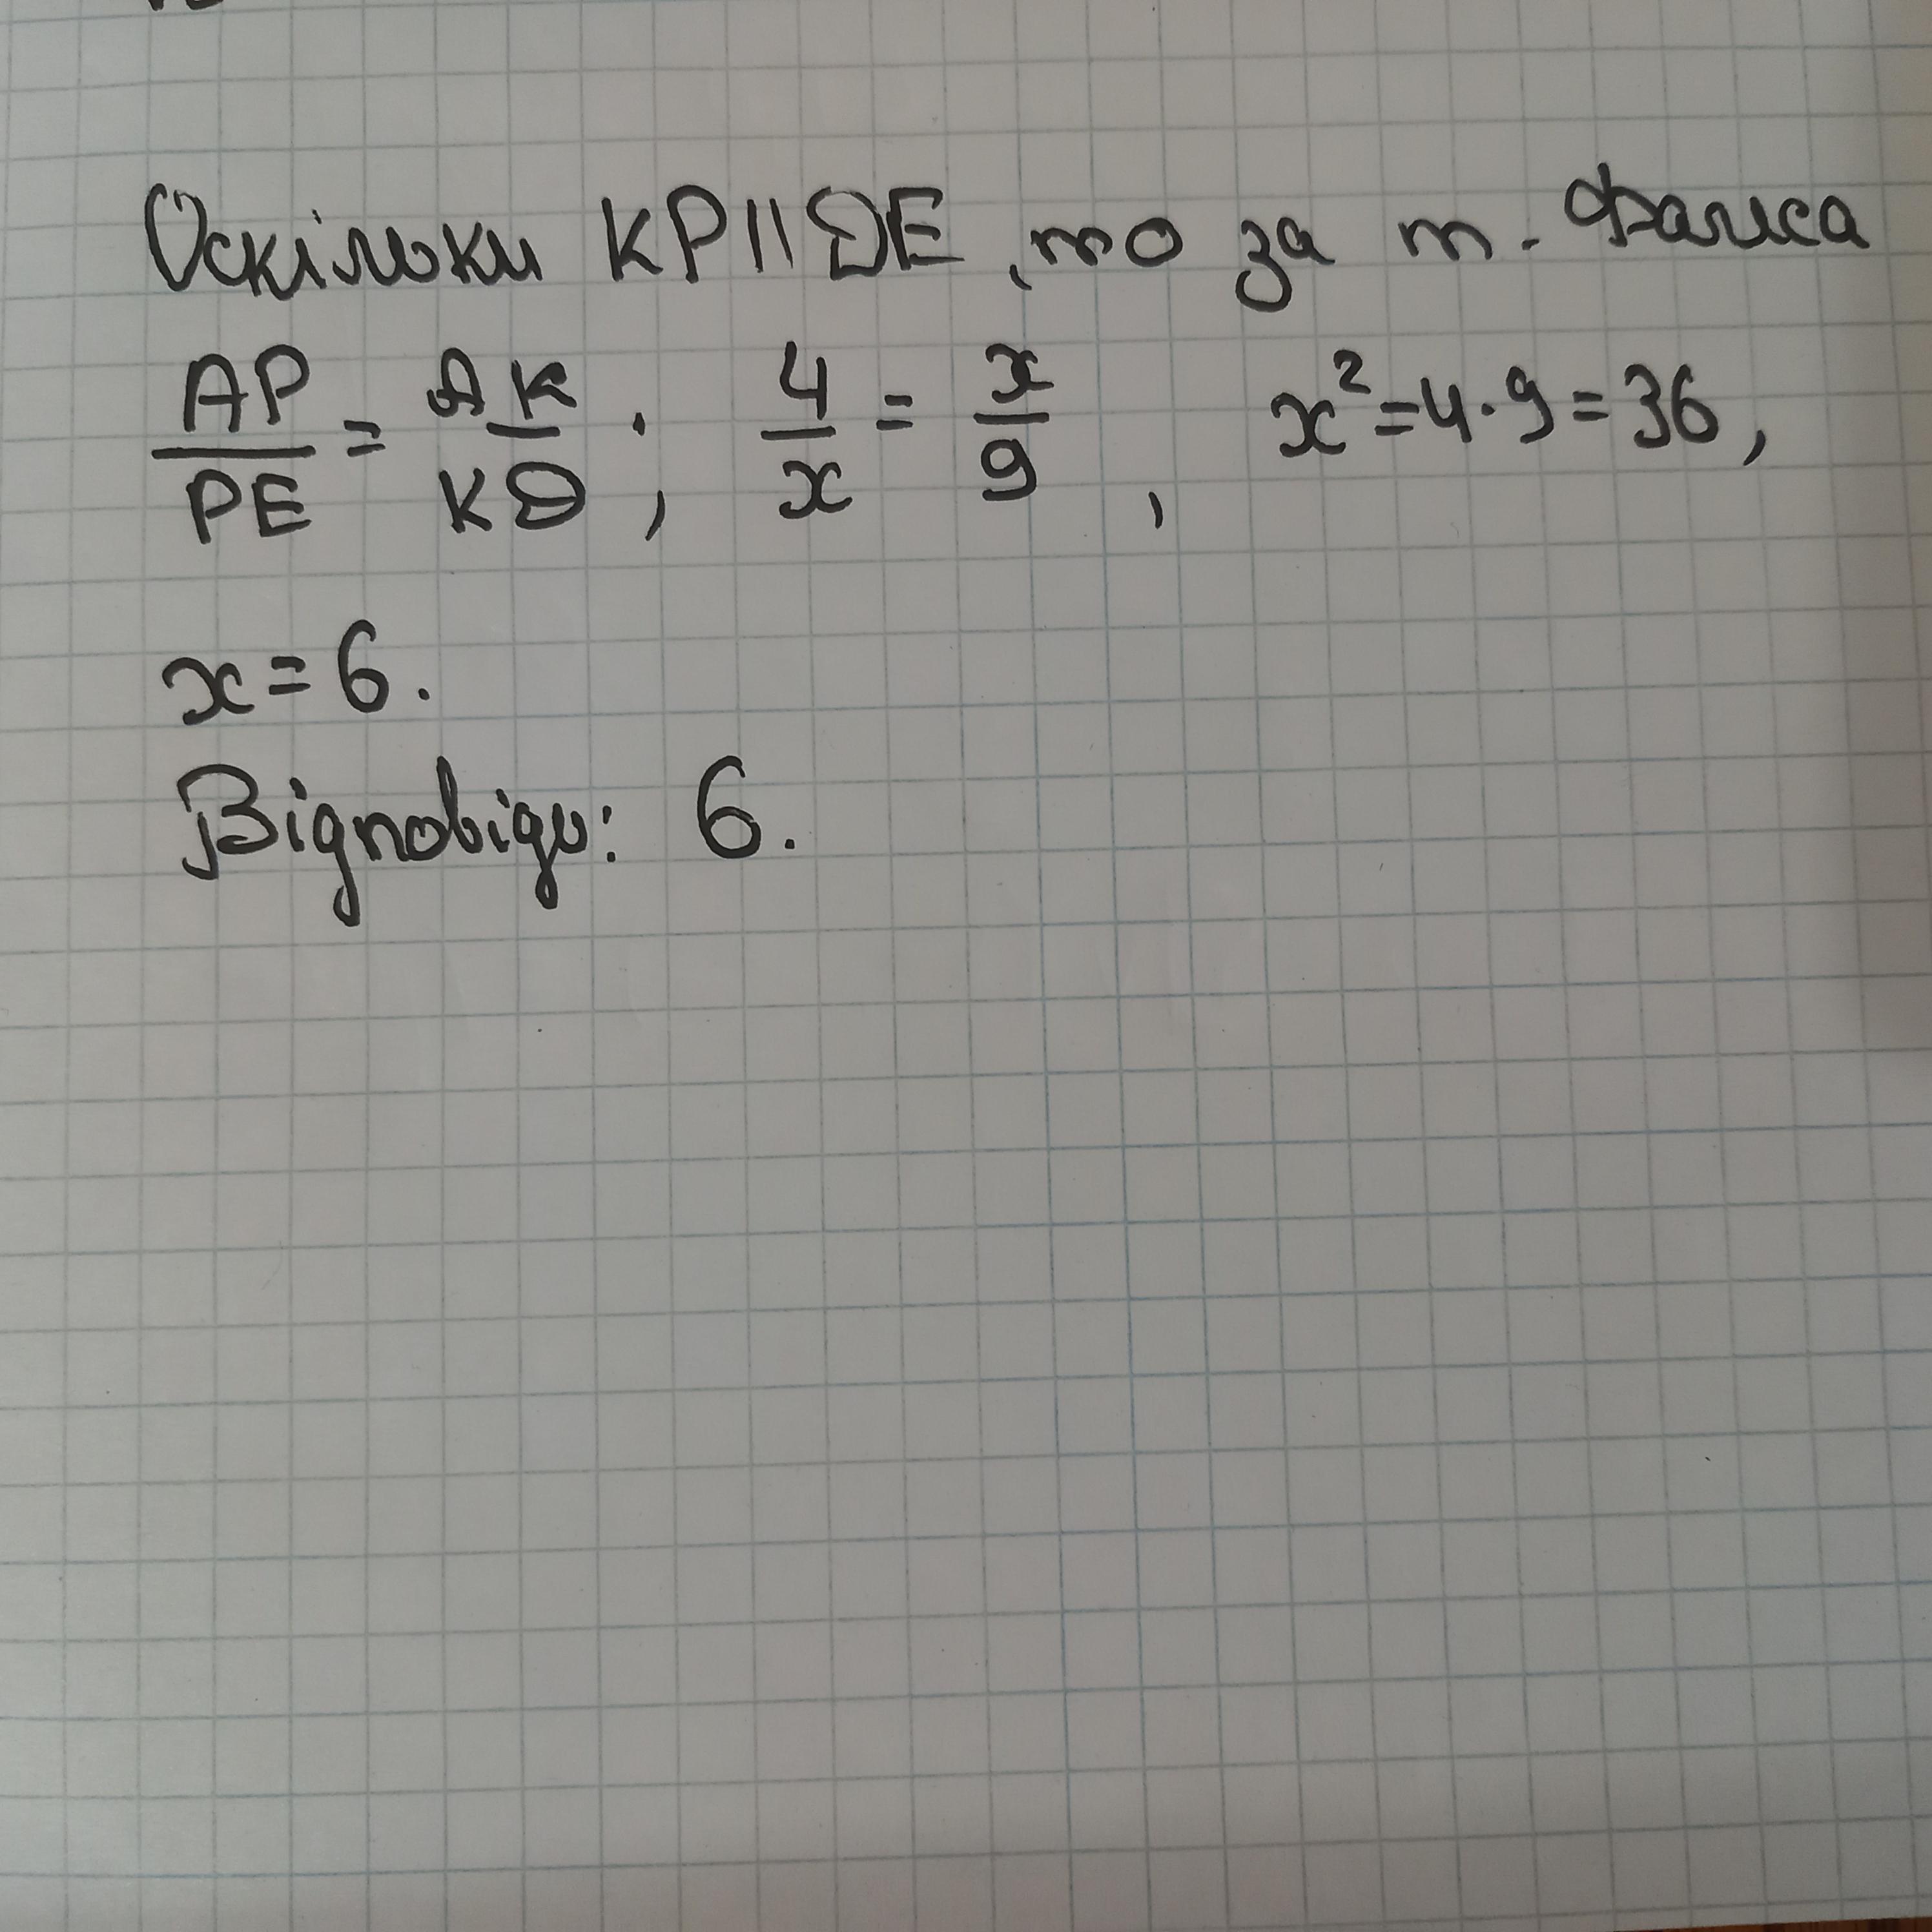 Оскільки KP||DE, то за т. Фалиса
AP/PE = AK/KD; 4/x = x/9, x² = 4·9 = 36,
x = 6.
Відповідь: 6.